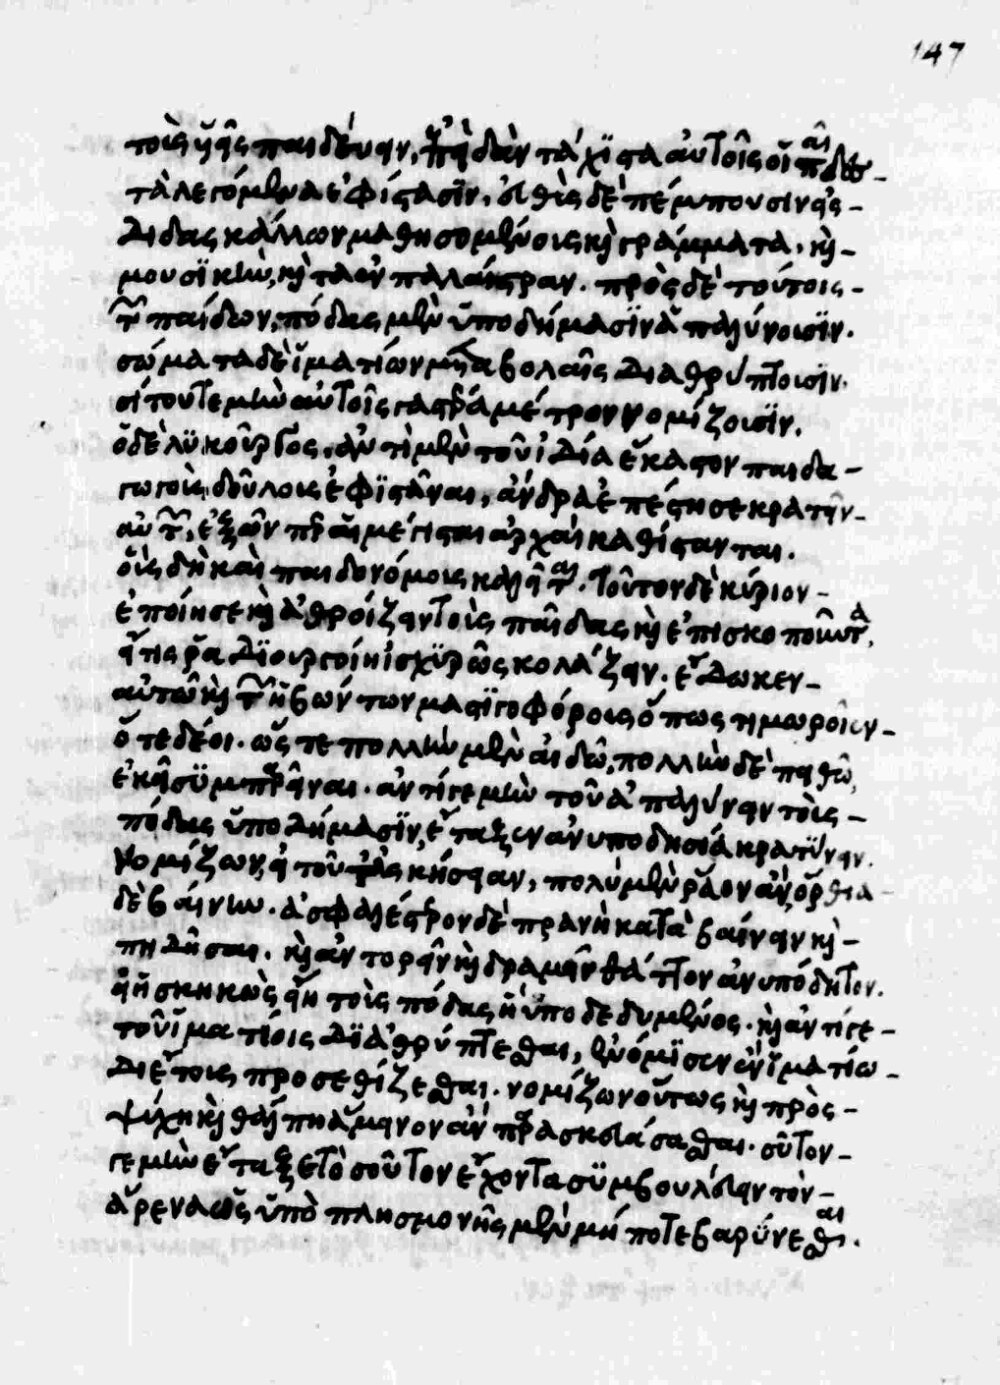 147
τοὺς υἱεῖς παιδεύειν, ἐπειδὰν τάχιστα αὐτοῖς οἱ παῖδες
τὰ λεγόμενα ξυνιῶσιν, εὐθὺς μὲν ἐπ' αὐτοῖς παιδαγωγοὺς
τὰ λεγόμενα ἐφίστασιν. εὐθὺς δὲ πέμπουσιν εἰς
διδασκάλων μαθησομένους καὶ γράμματα. καὶ
μουσικὴν, καὶ τὰ ἐν παλαίστρᾳ. πρὸς δὲ τούτοις
τῶν παίδων, πόδας μὲν ὑποδήμασιν ἁπαλύνουσιν.
σώματα δὲ ἱματίων μεταβολαῖς διαθρύπτουσιν.
σίτου γε μὴν αὐτοῖς γαστέρα μέτρον νομίζουσιν.
ὁ δὲ λυκοῦργος, ἀντὶ μὲν τοῦ ἰδίᾳ ἕκαστον παιδα
γωγοὺς δούλους ἐφιστάναι, ἄνδρα ἐπέστησε κρατεῖν
αὐτῶν, ἐξ ὧνπερ αἱ μέγισται ἀρχαὶ καθίστανται.
ὃς δὴ καὶ παιδονόμος καλεῖται. τοῦτον δὲ κύριον
ἐποίησε καὶ ἀθροίζειν τοὺς παῖδας καὶ ἐπισκοποῦντα,
εἴ τις ῥᾳδιουργοίη ἰσχυρῶς κολάζειν. ἔδωκεν
αὐτῷ καὶ τῶν ἡβώντων μαστιγοφόρους ὅπως τιμωροῖεν
ὅτε δέοι. ὥστε πολλὴν μὲν αἰδῶ, πολλὴν δὲ πειθὼ,
ἐκεῖ συμπαρεῖναι. ἀντί γε μὴν τοῦ ἁπαλύνειν τοὺς
πόδας ὑποδήμασιν, ἔταξεν ἀνυποδησίᾳ κρατύνειν.
νομίζων, εἰ τοῦτ' ἀσκήσειαν, πολὺ μὲν ῥᾷον ἂν ὄρθια
δὲ βαίνειν. ἀσφαλέστερον δὲ πρανῆ καταβαίνειν καὶ
πηδῆσαι. καὶ ἀνθορεῖν καὶ δραμεῖν θᾶττον ἀνυπόδητον.
εἰ ἠσκηκὼς εἴη τοὺς πόδας ἢ ὑποδεδυμένος. καὶ ἀντί γε
τοῦ ἱματίοις διαθρύπτεσθαι, ἐνόμισεν ἑνὶ ἱματίῳ
δι' ἔτους προσεθίζεσθαι. νομίζων οὕτως καὶ πρὸς
ψύχη καὶ θάλπη ἄμεινον ἂν παρασκευάσασθαι. σῖτον
γε μὴν ἔταξε τοσοῦτον ἔχοντα συμβουλεύειν τὸν
ἄρρενα ὡς ὑπὸ πλησμονῆς μὲν μήποτε βαρύνεσθαι.